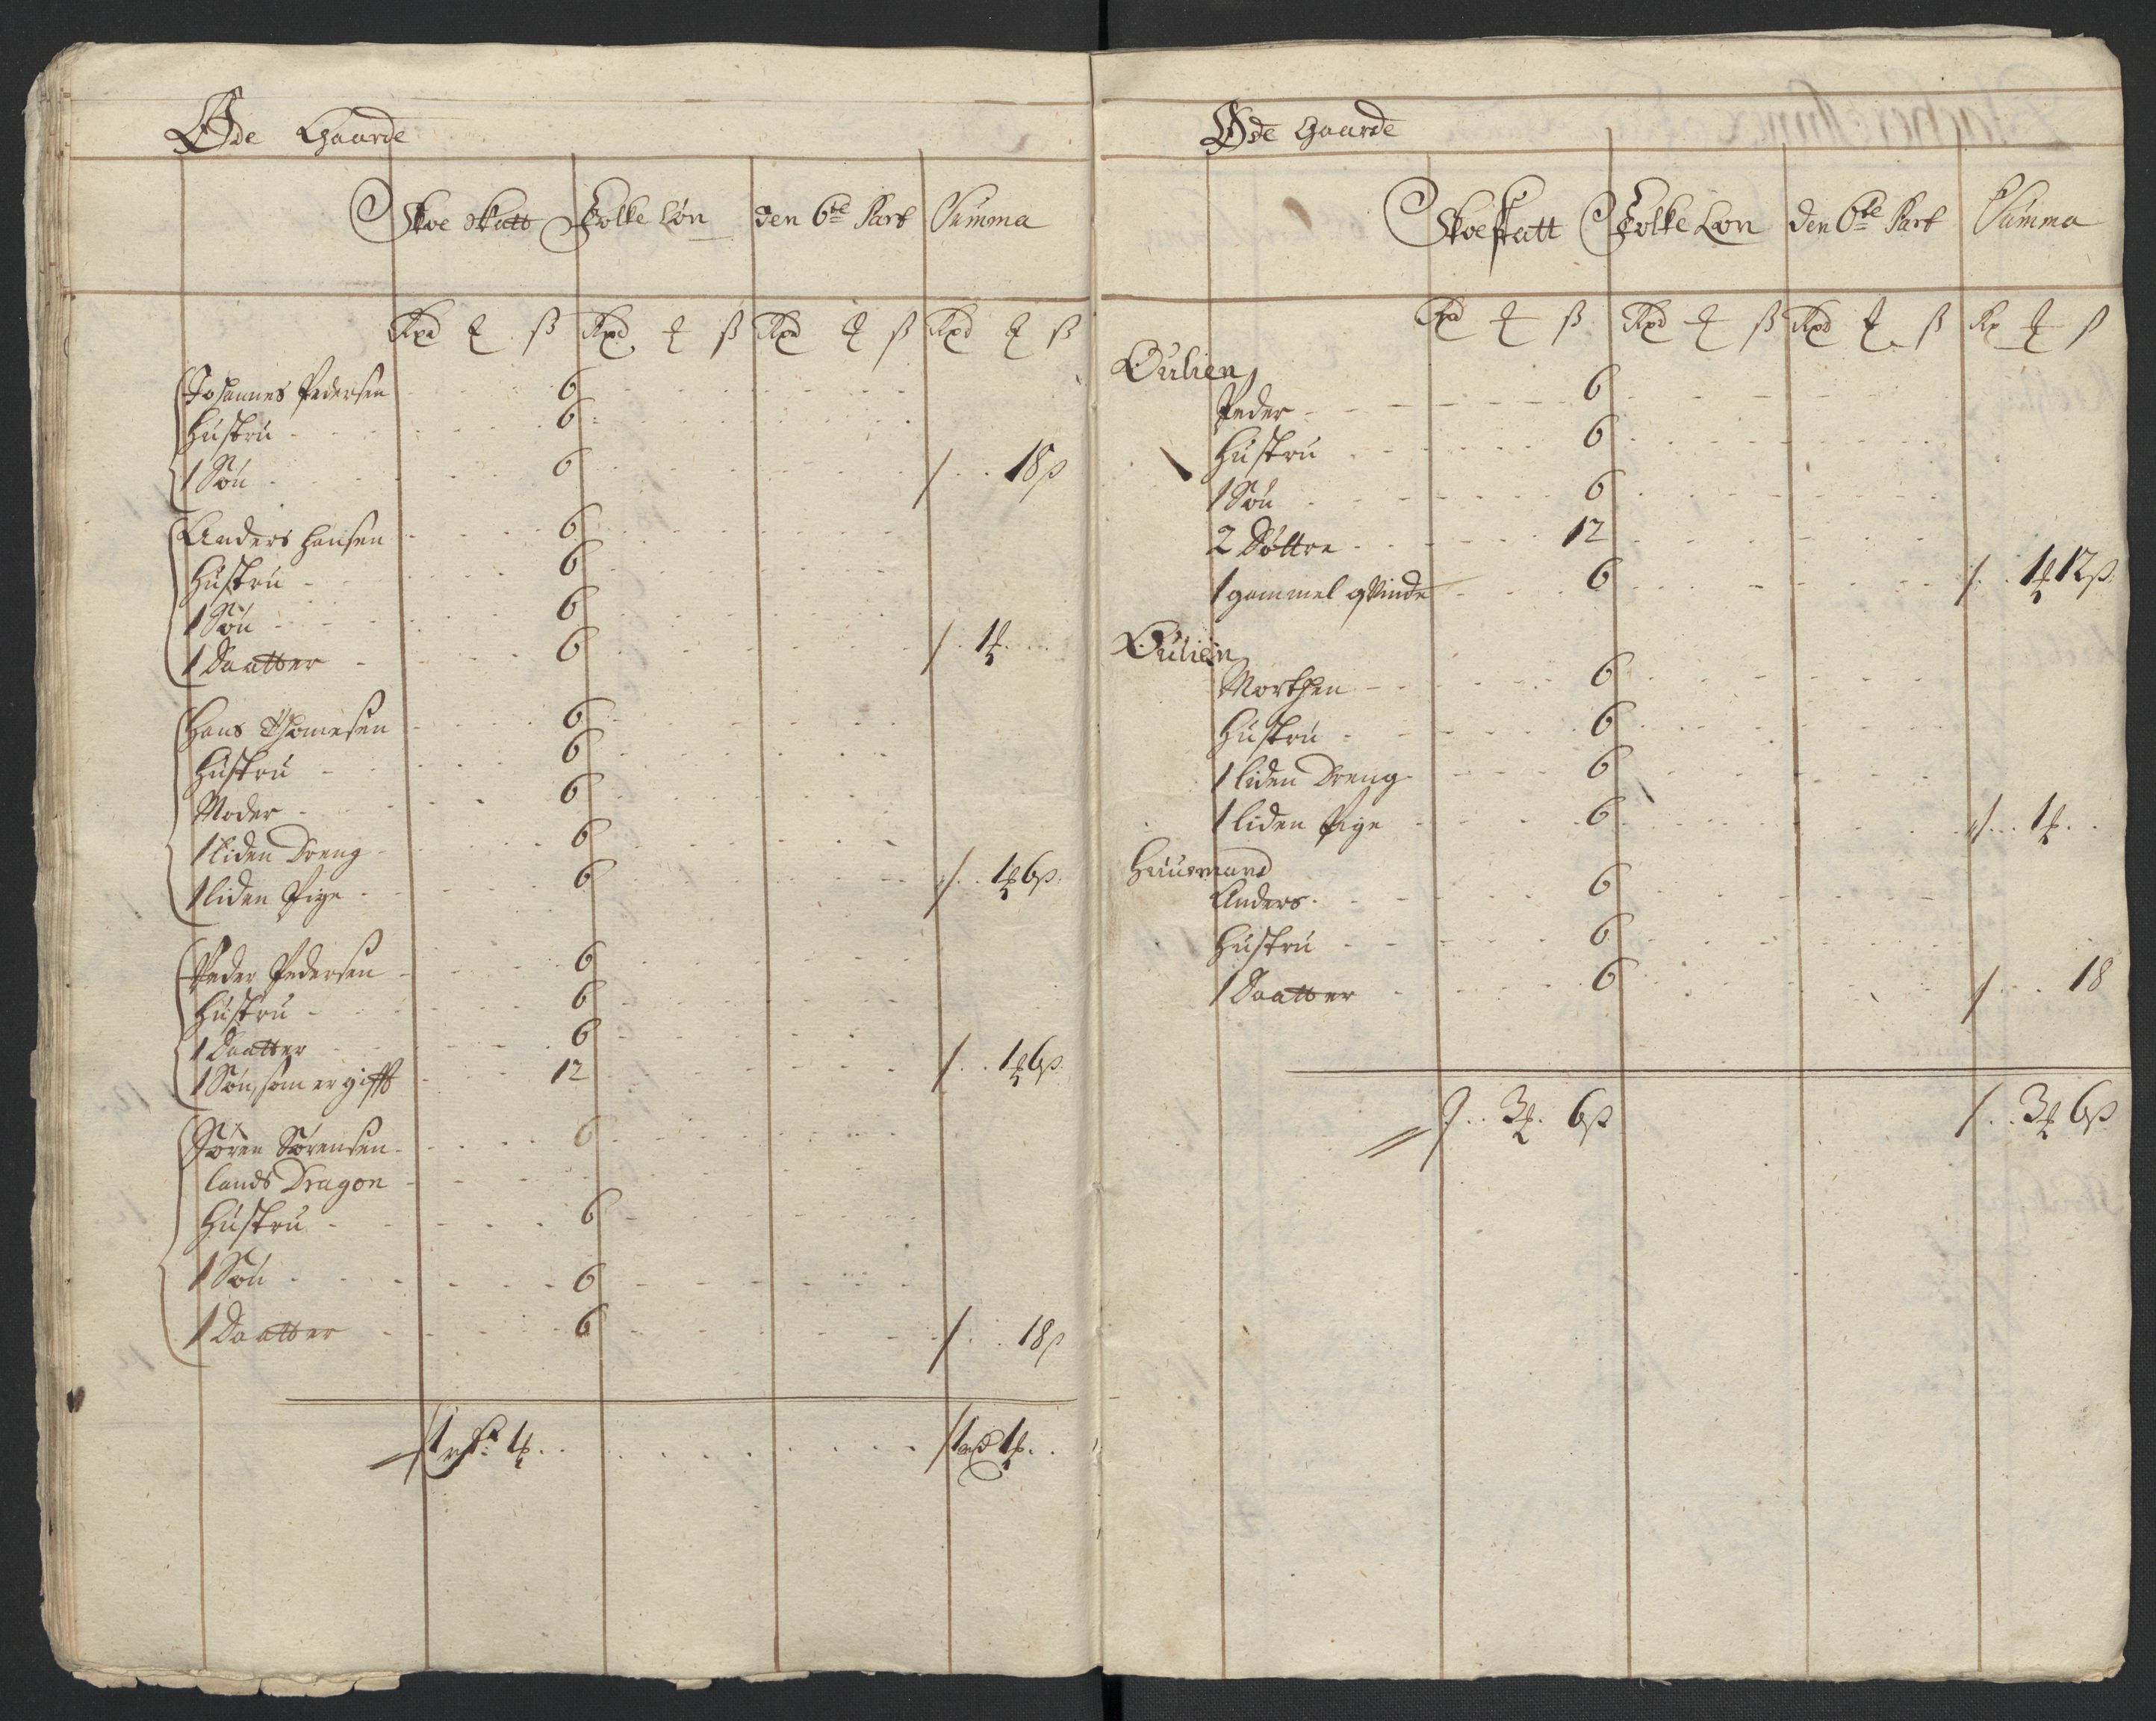 Øde Gaarde
Skoe Skatt Folke Løn den 6te Part Summa
Rxd ß Rxd ß Rxd ß Rxd ß
Johannes Pedersen 6
Hustru 6
1 Søn 6 / 18 ß
Anders Hansen 6
Hustru 6
1 Søn 6
1 Daatter 6 / 1 ℔
Hans Thomesen 6
Hustru 6
Moder 6
1 liden Dreng 6
1 liden Pige 6 / 1 ℔ 6 ß
Peder Pedersen 6
Hustru 6
1 Daatter 6
1 Søn, som er gifft 12 / 1 ℔ 6 ß
Søren Sørensen 6
lands Dragon
Hustru 6
1 Søn 6
1 Daatter 6 / 18 ß
/ 1 1 ℔ / 1 rd 1 ℔
Øde Gaarde
Skoe skatt Folke Løn den 6te Part Summa
Rxd ß Rxd ß Rxd ß Rx ß
Oulien
Peder 6
Hustru 6
1 Søn 6
2 Døttre 12
1 gammel qvinde 6 / 1 ℔ 12 ß
Oulien
Morthen 6
Hustru 6
1 liden Dreng 6
1 liden Pige 6 / 1 ℔
Huusmand
Anders 6
Hustru 6
1 Daatter 6 / 18
/ 3 ℔ 6 ß / 3 ℔ 6 ß